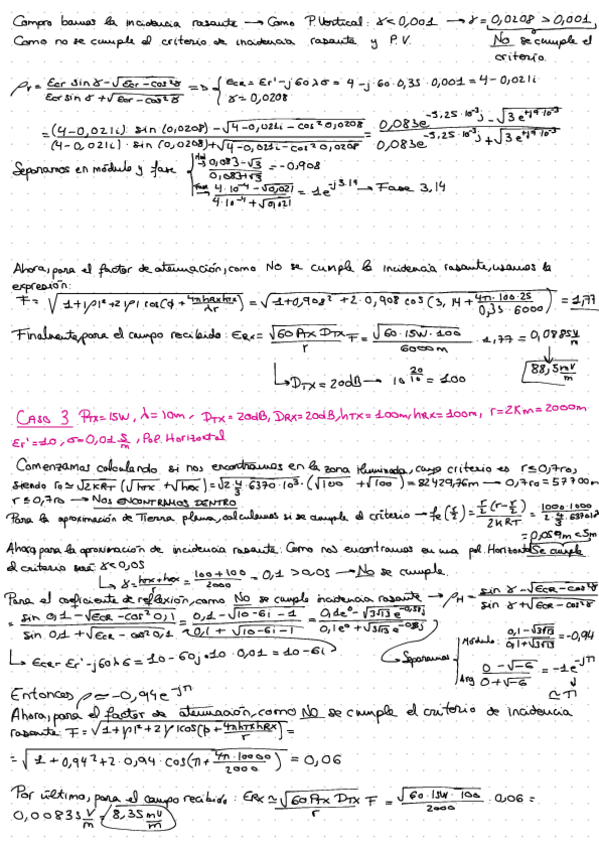 Comprobamos la incidencia rasante → Como P.Vertical: γ < 0,001 → γ = 0,0208 > 0,001,
Como no se cumple el criterio de incidencia rasante y P.V. No se cumple el criterio.
ρv = (εcr sin γ - √(εcr - cos²γ)) / (εcr sin γ + √(εcr - cos²γ)) => { εcr = εr' - j60λσ = 4 - j·60·0,35·0,001 = 4 - 0,021i
γ = 0,0208
= ((4-0,021i) · sin (0,0208) - √(4-0,021i - cos² 0,0208)) / ((4-0,021i) · sin (0,0208) + √(4-0,021i - cos² 0,0208)) = (0,083e^(-5,25·10⁻³j) - √3e) / (0,083e^(-5,25·10⁻³j) + √3e)
Separamos en módulo y fase { (0,083-√3) / (0,083+√3) = -0,908
(4·10⁻⁴ - √0,021) / (4·10⁻⁴ + √0,021) = 1e^(-j3,14) → Fase 3,14
Ahora, para el factor de atenuación, como NO se cumple la incidencia rasante, usamos la
expresión:
F = √(1+|ρ|²+2|ρ| cos(φ + 4π hTx hRx / λr)) = √(1+0,908² + 2·0,908 cos (3,14 + 4π·100·25 / 0,35·6000)) = 1,77
Finalmente, para el campo recibido: ERx = √(60 PTx DTx) / r F = √(60·15W·100) / 6000m · 1,77 = 0,0885 V/m
↳ DTx = 20dB → 10^(20/10) = 100 88,5 mV/m
CASO 3 PTx = 15W, λ = 10m, DTx = 20dB, DRx = 20dB, hTx = 100m, hRx = 100m, r = 2Km = 2000m
εr' = 10, σ = 0,01 S/m, Pol. Horizontal
Comenzamos calculando si nos encontramos en la zona iluminada, cuyo criterio es r ≤ 0,7r₀,
siendo r₀ ≃ √2KRT (√hTx + √hRx) = √(2 4/3 · 6370·10³) · (√100 + √100) = 82429,76m → 0,7r₀ = 57700m
r ≤ 0,7r₀ → NOS ENCONTRAMOS DENTRO
Para la aproximación de Tierra plana, calculamos si se cumple el criterio → fe(r/2) = (r/2 (r - r/2)) / 2KRT = 1000·1000 / 2 4/3 6370
= 0,059m < 5m
Ahora para la aproximación de incidencia rasante: Como nos encontramos en una pol. Horizontal Se cumple
el criterio será γ < 0,05
↳ γ = (hTx + hRx) / r = (100 + 100) / 2000 = 0,1 > 0,05 → No se cumple.
Para el coeficiente de reflexión, como No se cumple incidencia rasante → ρH = (sin γ - √(εcr - cos²γ)) / (sin γ + √(εcr - cos²γ))
= (sin 0,1 - √(εcr - cos² 0,1)) / (sin 0,1 + √(εcr - cos² 0,1)) = (0,1 - √(10-6i-1)) / (0,1 + √(10-6i-1)) = (0,1e⁰ - √3√13 e^(-0,58j)) / (0,1e⁰ + √3√13 e^(-0,58j))
↳ εcr = εr' - j60λσ = 10 - 60j·10·0,01 = 10 - 6i Separamos { Módulo: (0,1 - √3√13) / (0,1 + √3√13) = -0,94
Arg (0 - √-6) / (0 + √-6) = -1e^(-jπ) ≃ π
Entonces ρ ≃ -0,94e^(-jπ)
Ahora, para el factor de atenuación, como NO se cumple el criterio de incidencia
rasante F = √(1+|ρ|²+2|ρ|cos(φ + 4π hTx hRx / r)) =
= √(1+0,94²+2·0,94·cos(π + 4π·10000 / 2000)) = 0,06
Por último, para el campo recibido: ERx ≃ √(60 PTx DTx) / r F = √(60·15W·100) / 2000 · 0,06 =
0,00835 V/m = 8,35 mV/m